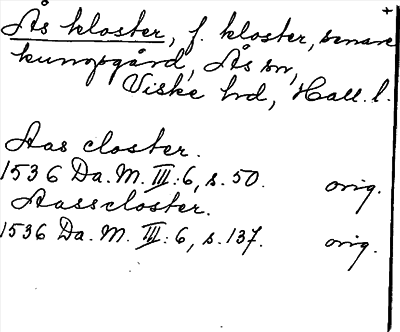 Ås kloster, f. kloster, senare
kungsgård, Ås sn,
Viske hd, Hall. l.
Aas closter.
1536 Da. M. III: 6, s. 50. orig.
Aasscloster.
1536 Da. M. III: 6, s. 137. orig.